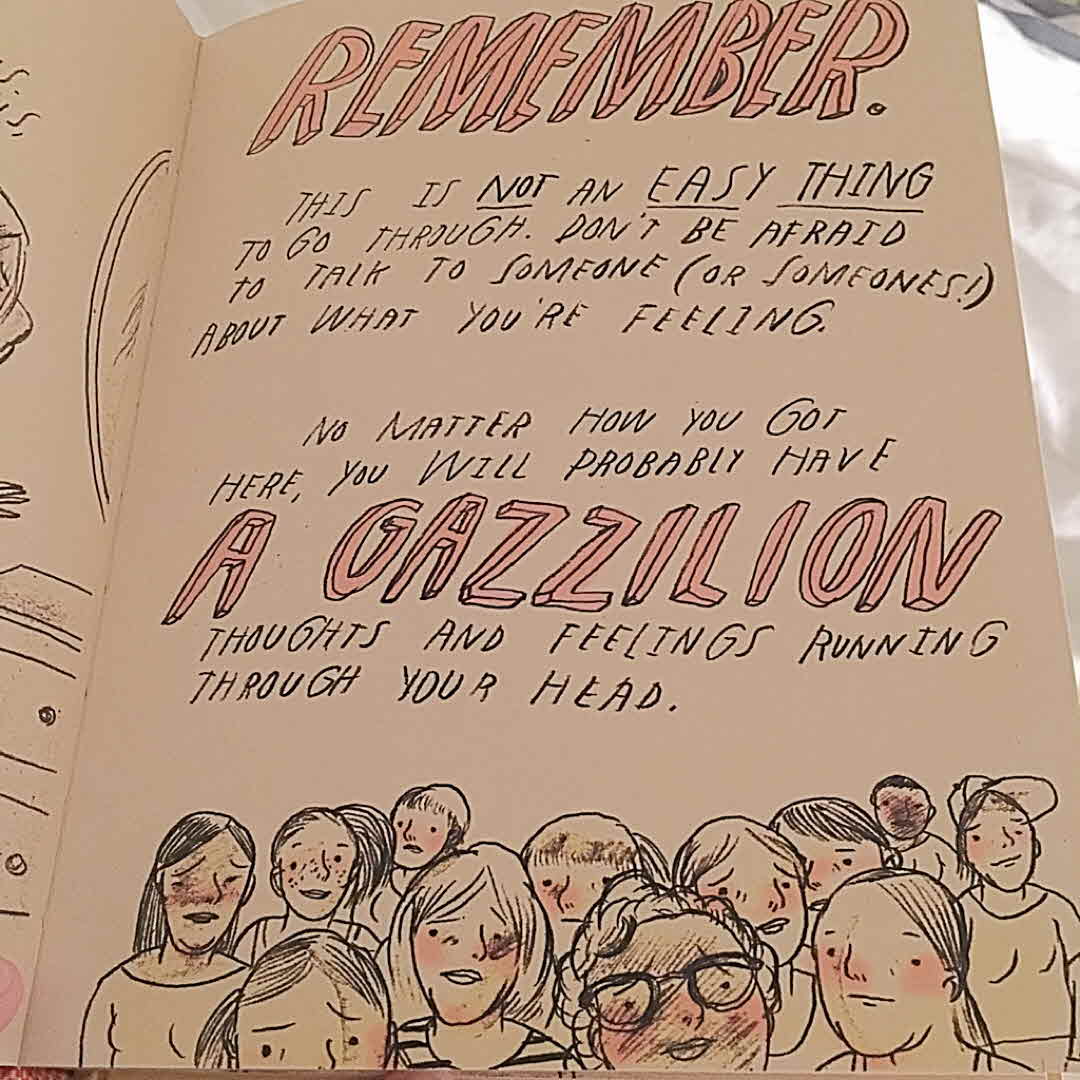 REMEMBER.
THIS IS NOT AN EASY THING
TO GO THROUGH. DON'T BE AFRAID
TO TALK TO SOMEONE (OR SOMEONES!)
ABOUT WHAT YOU'RE FEELING.
NO MATTER HOW YOU GOT
HERE, YOU WILL PROBABLY HAVE
A GAZZILION
THOUGHTS AND FEELINGS RUNNING
THROUGH YOUR HEAD.